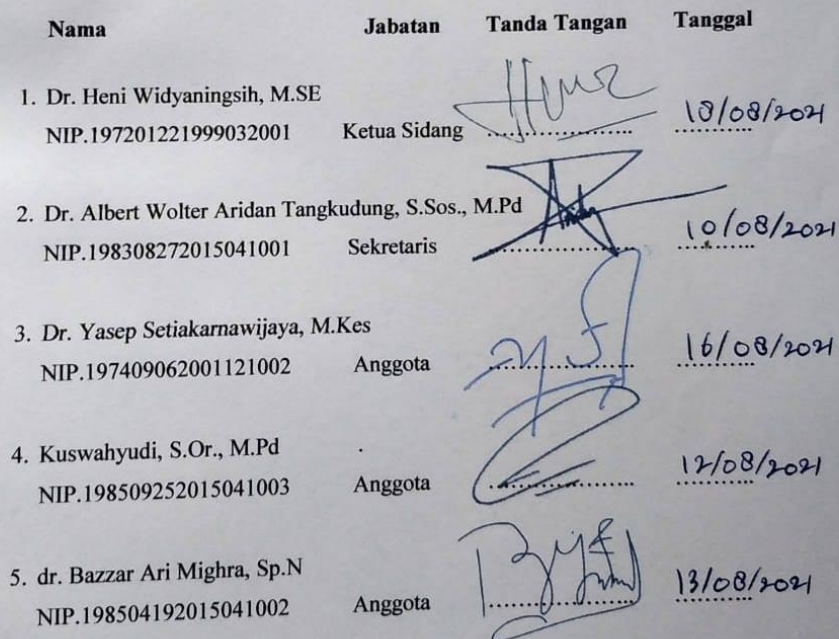 Nama Jabatan Tanda Tangan Tanggal
1. Dr. Heni Widyaningsih, M.SE
NIP.197201221999032001 Ketua Sidang 18/08/2021
2. Dr. Albert Wolter Aridan Tangkudung, S.Sos., M.Pd
NIP.198308272015041001 Sekretaris 10/08/2021
3. Dr. Yasep Setiakarnawijaya, M.Kes
NIP.197409062001121002 Anggota 16/08/2021
4. Kuswahyudi, S.Or., M.Pd
NIP.198509252015041003 Anggota 12/08/2021
5. dr. Bazzar Ari Mighra, Sp.N
NIP.198504192015041002 Anggota 13/08/2021